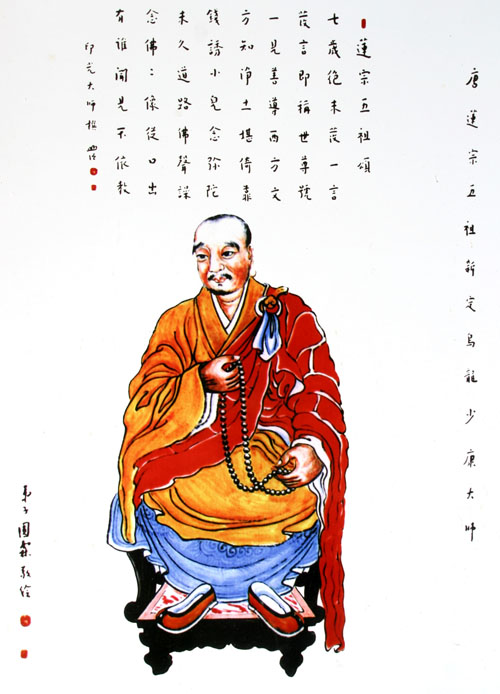 唐蓮宗五祖新定烏龍少康大師
蓮宗五祖頌
七歲絕未發一言
發言即稱世尊號
一見善導西方文
方知淨土堪倚靠
錢誘小兒念彌陀
未久道路佛聲譟
念佛〻像從口出
有誰聞見不依教
印光大師撰
弟子圓霖敬繪